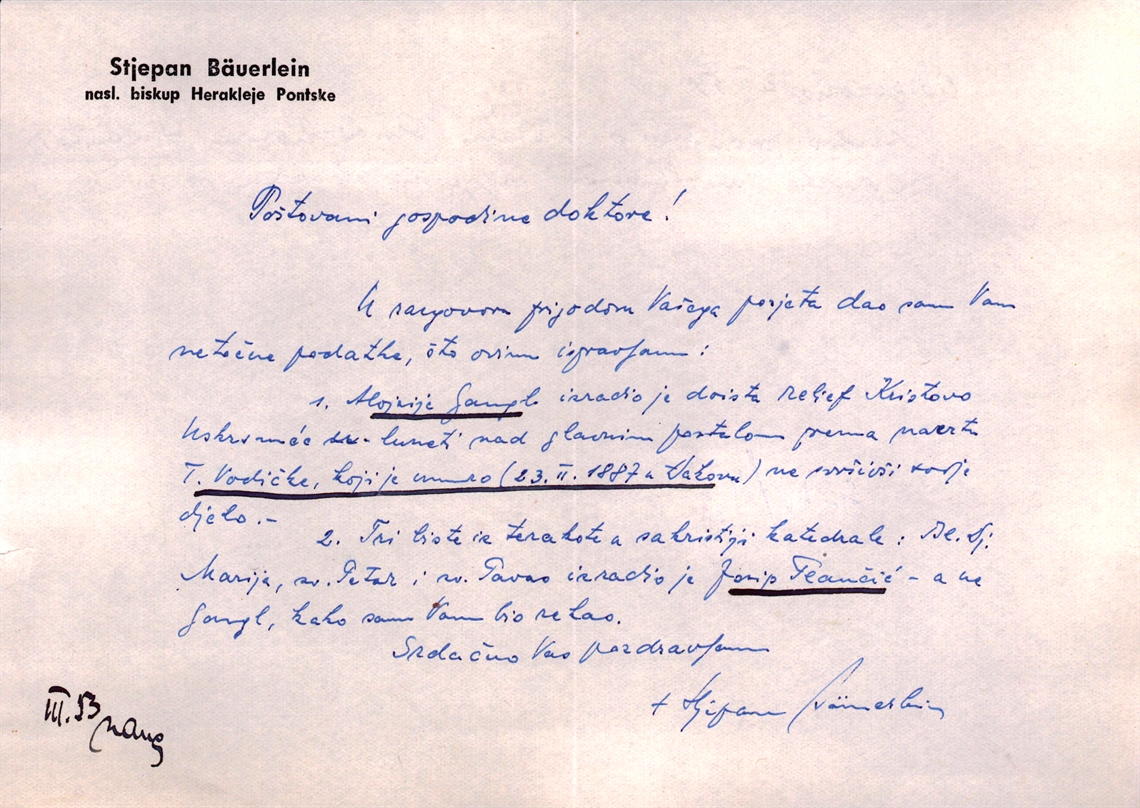 Stjepan Bäuerlein
nasl. biskup Herakleje Pontske
Poštovani gospodine doktore!
U razgovoru prigodom Vašega posjeta dao sam Vam
netočne podatke, što ovim ispravljam:
1. Alojzije Gangl izradio je doista relief Kristovo
Uskrsnuće u luneti nad glavnim portalom prema nacrtu
T. Vodičke, koji je umro (23. II. 1887 u Đakovu) ne svršivši svoje
djelo.-
2. Tri biste iz terakote u sakristiji katedrale: Bl. Dj.
Marija, sv. Petar i sv. Pavao izradio je Josip Plančić - a ne
Gangl, kako sam Vam bio rekao.
Srdačno Vas pozdravljam
+ Stjepan Bäuerlein
III. 53